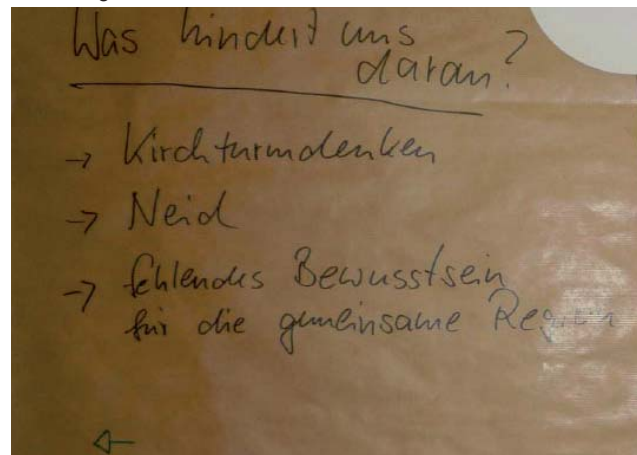 Was hindert uns
daran?
→ Kirchturmdenken
→ Neid
→ fehlendes Bewusstsein
für die gemeinsame Region